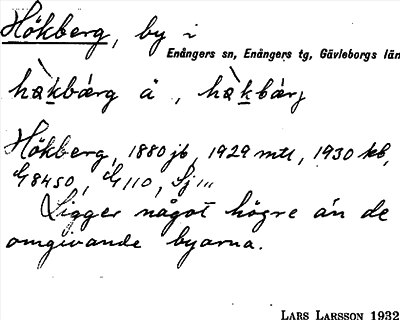 Hökberg, by i
Enångers sn, Enångers tg, Gävleborgs län
hàkbærg å, hàkbærj
Hökberg, 1880 jb, 1929 mtl, 1930 kb,
G8450, G110, Sj
Ligger något högre än de
omgivande byarna.
LARS LARSSON 1932